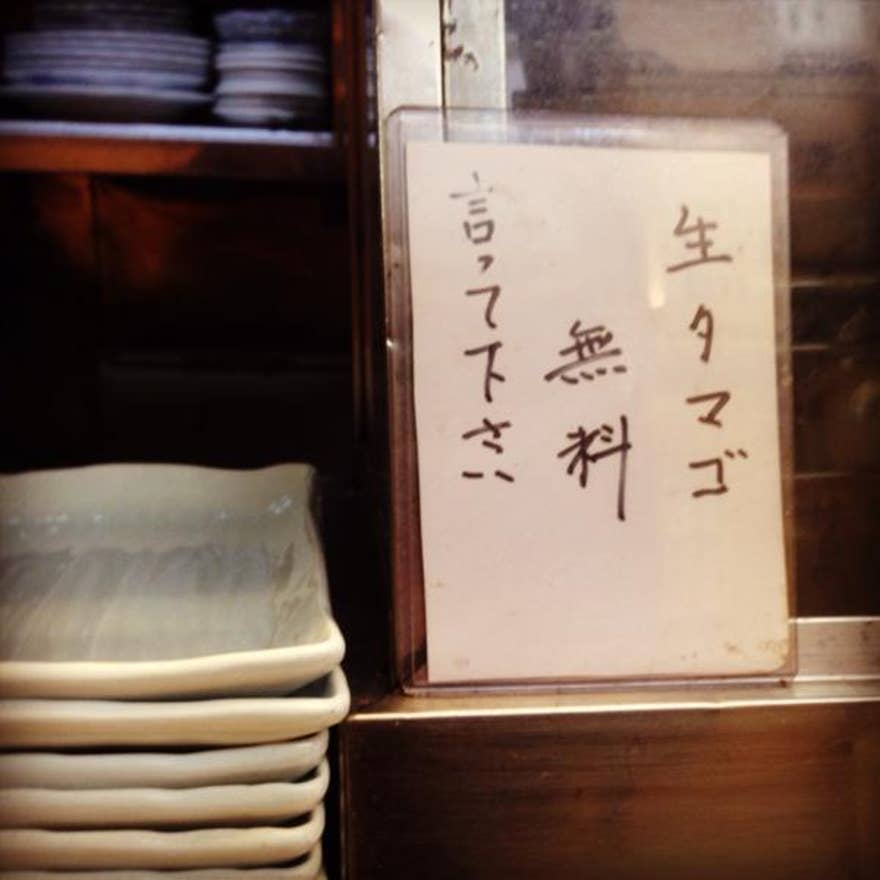 生タマゴ
無料
言って下さい